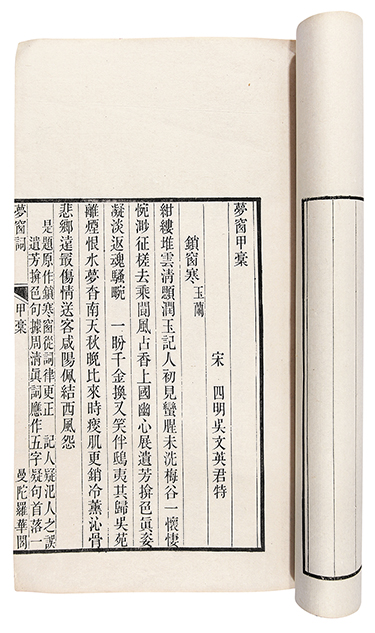 夢窗甲稾
宋 四明吳文英君特
鎖窗寒 玉蘭
紺縷堆雲清顋潤玉記人初見蠻腥未洗梅谷一懷悽
惋渺征槎去乘閬風占香上國幽心展遺芳揜色眞姿
凝淡返魂騷畹 一盼千金換又笑伴鴟夷共歸吳苑
離煙恨水夢杳南天秋晚比來時瘦肌更銷冷薰沁骨
悲鄉遠最傷情送客咸陽佩結西風怨
是題原作鎖寒窗從詞律更正 記人疑汜人之誤
遺芳揜色句據周清眞詞應作五字疑句首落一
夢窗詞 甲稾 曼陀羅華閣